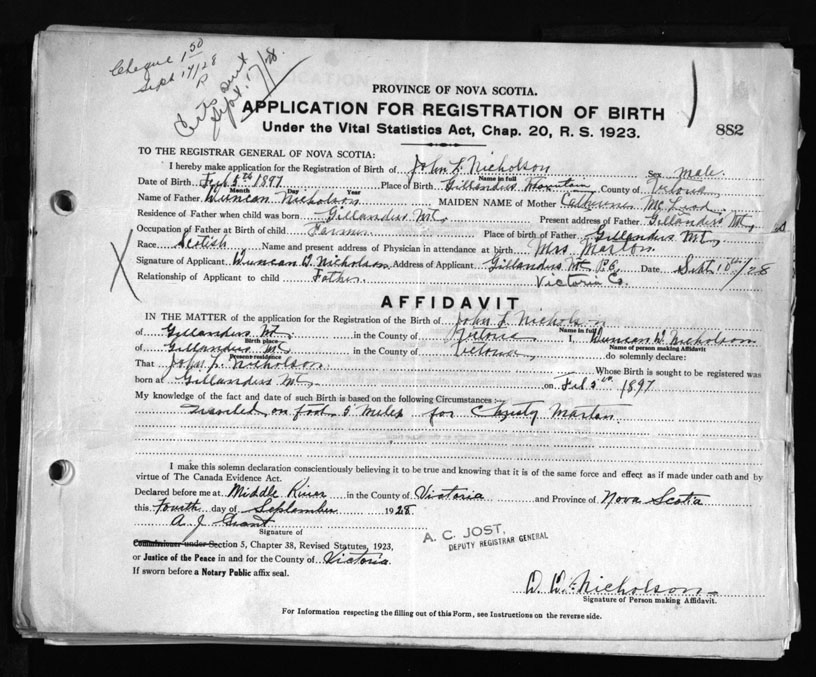 Cheque 1 50
Sept 17/28
Certs sent
Sept. 17/28.
PROVINCE OF NOVA SCOTIA.
APPLICATION FOR REGISTRATION OF BIRTH
882
Under the Vital Statistics Act, Chap. 20, R. S. 1923.
TO THE REGISTRAR GENERAL OF NOVA SCOTIA:
I hereby make application for the Registration of Birth of John L. Nicholson Sex Male.
Name in full
Date of Birth Feb 5th 1897 Place of Birth Gillanders Mountain County of Victoria
Month Day Year
Name of Father Duncan Nicholson MAIDEN NAME of Mother McLeod
Residence of Father when child was born Gillanders Mt. Present address of Father Gillanders Mt.
Occupation of Father at Birth of child Farmer Place of birth of Father Gillanders Mt.
Race Scotish Name and present address of Physician in attendance at birth Mrs Marton
Signature of Applicant Duncan D. Nicholson Address of Applicant Gillanders Mt P.O. Date Sept 10th/28
Relationship of Applicant to child Father. Victoria Co.
AFFIDAVIT
IN THE MATTER of the application for the Registration of the Birth of John L Nichols
Name in full
of Gillanders Mt. in the County of Victoria I, Duncan D. Nicholson
Birth place Name of person making Affidavit
of Gillanders Mt. in the County of Victoria do solemnly declare:
Present residence
That John L. Nicholson Whose Birth is sought to be registered was
born at Gillanders Mt. on Feb 5th 1897
My knowledge of the fact and date of such Birth is based on the following Circumstances:
Traveled on foot 5 miles for Christy Marton
I make this solemn declaration conscientiously believing it to be true and knowing that it is of the same force and effect as if made under oath and by
virtue of The Canada Evidence Act.
Declared before me at Middle River in the County of Victoria and Province of Nova Scotia
this Fourth day of September 1928
A. J. Grant
Signature of
A. C. JOST,
DEPUTY REGISTRAR GENERAL
Commissioner under Section 5, Chapter 38, Revised Statutes, 1923,
or Justice of the Peace in and for the County of Victoria.
If sworn before a Notary Public affix seal.
D. D. Nicholson
Signature of Person making Affidavit.
For Information respecting the filling out of this Form, see Instructions on the reverse side.